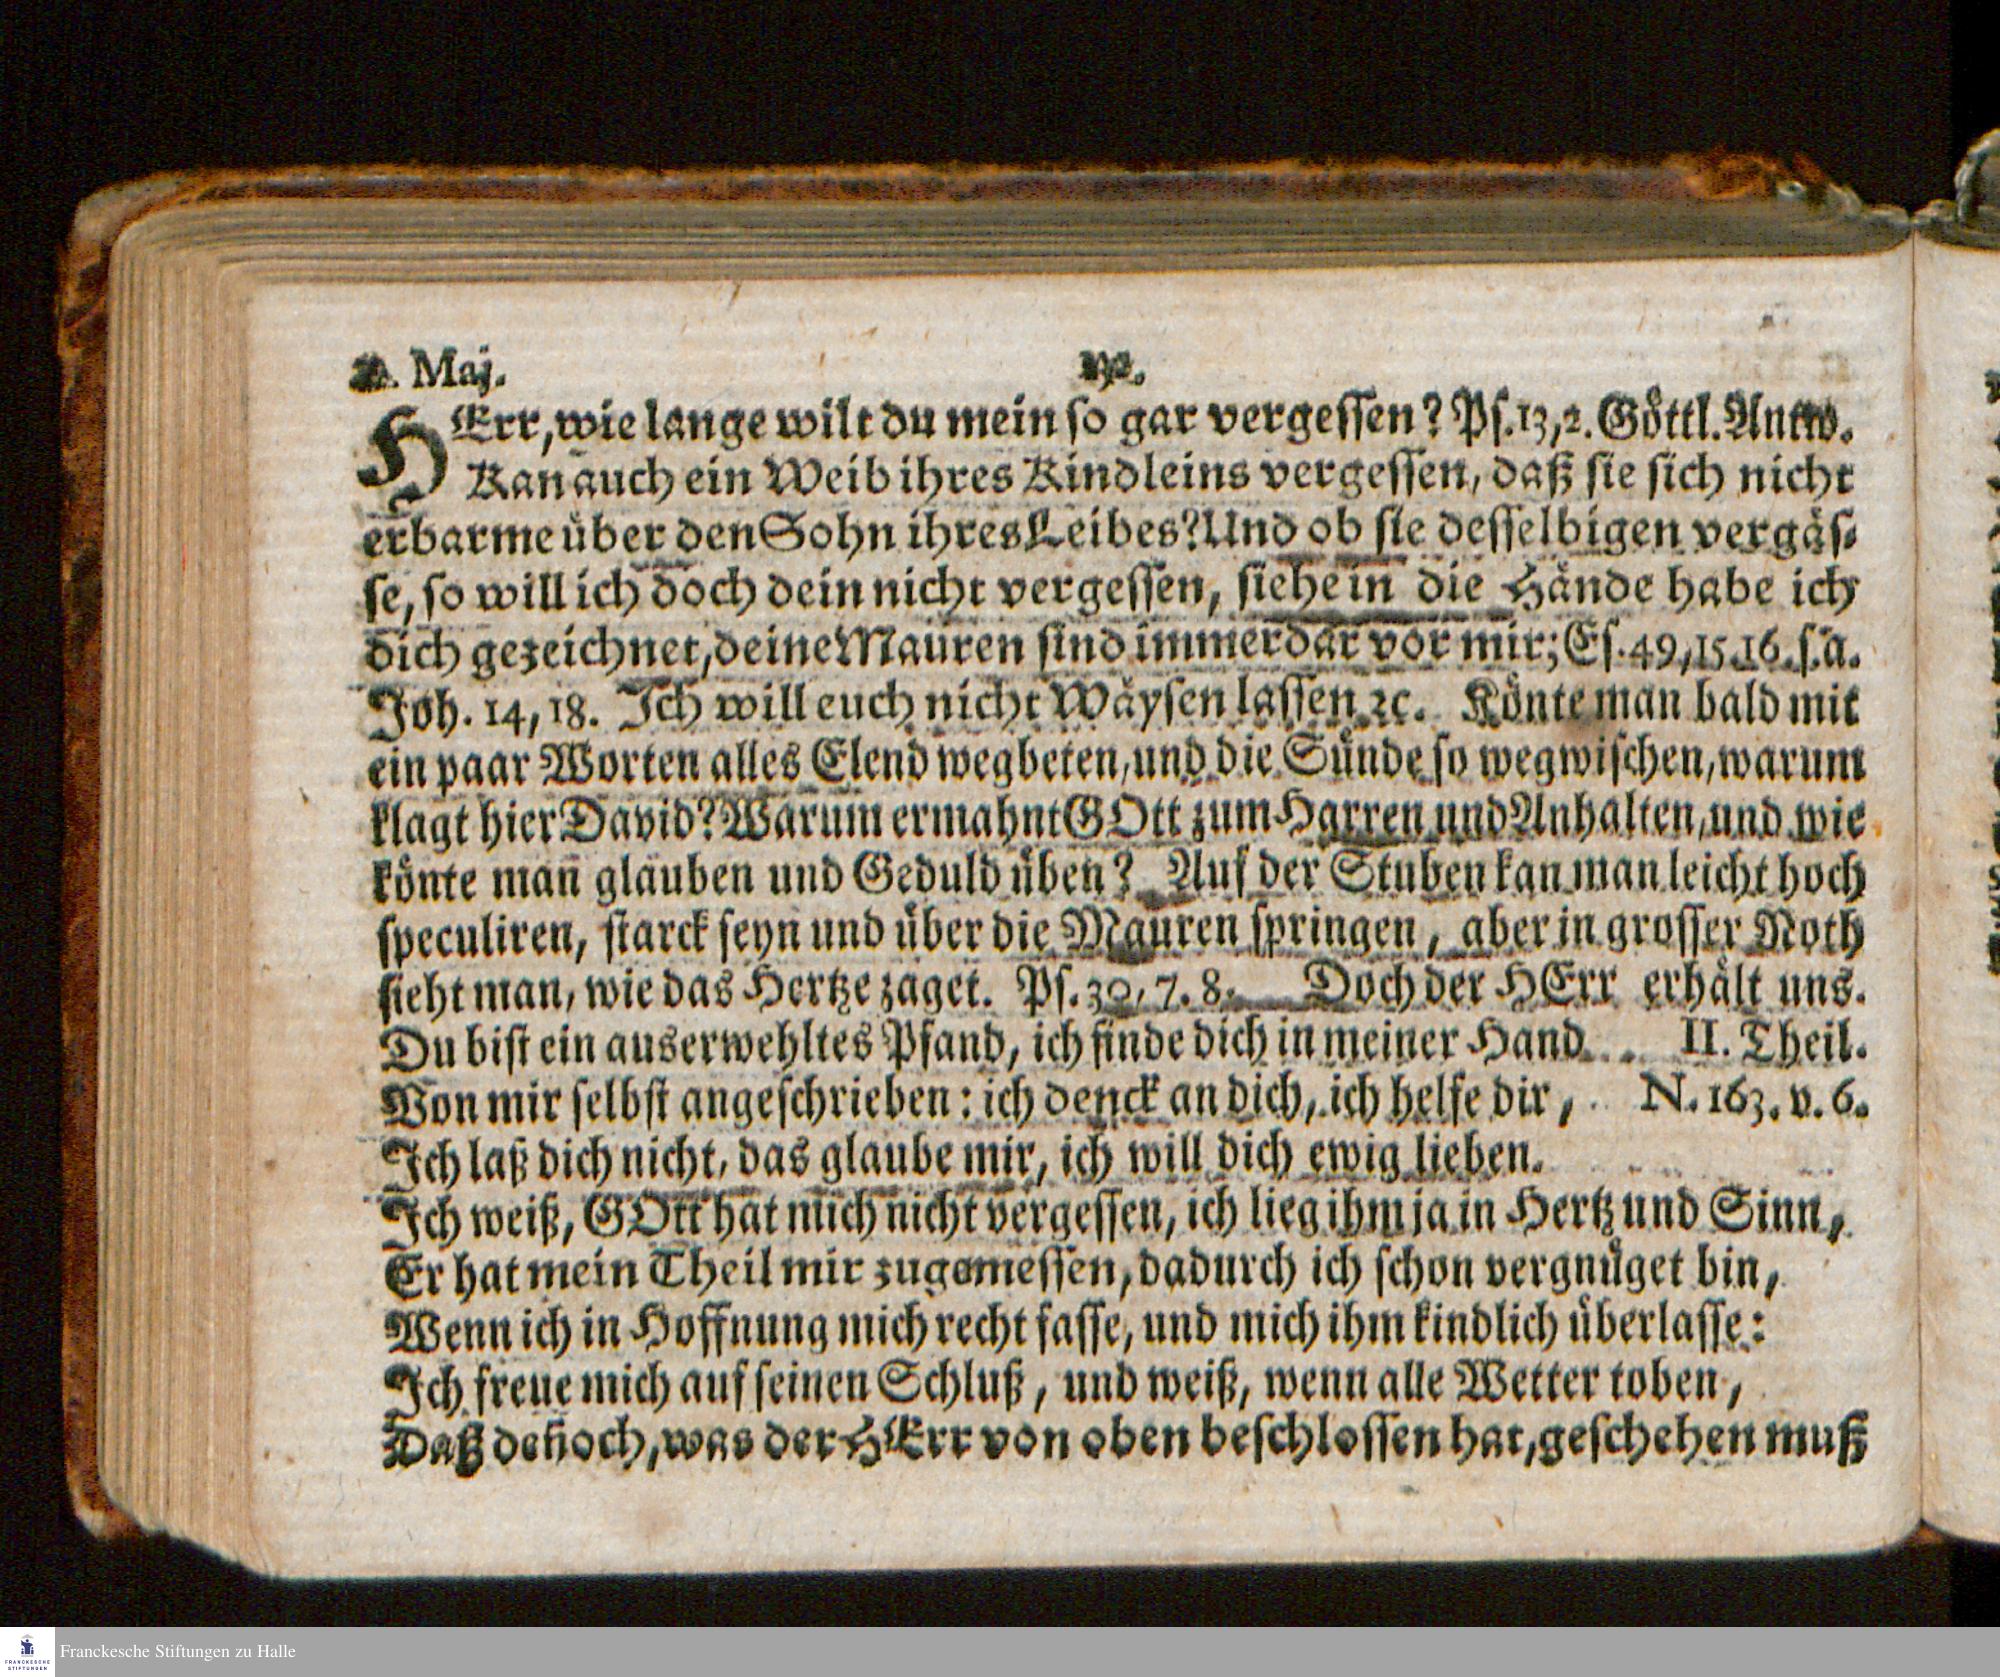 Maj.
HErr, wie lange wilt du mein so gar vergessen? Ps. 13, 2. Göttl. Antw.
Kan auch ein Weib ihres Kindleins vergessen, daß sie sich nicht
erbarme über den Sohn ihres Leibes? Und ob sie desselbigen vergäs-
se, so will ich doch dein nicht vergessen, siehe in die Hände habe ich
dich gezeichnet, deine Mauren sind immerdar vor mir; Es. 49, 15. 16. s. a.
Joh. 14, 18. Ich will euch nicht Wäysen lassen ꝛc. Könte man bald mit
ein paar Worten alles Elend wegbeten, und die Sünde so wegwischen, warum
klagt hier David? Warum ermahnt GOtt zum Harren und Anhalten, und wie
könte man glauben und Geduld üben? Auf der Stuben kan man leicht hoch
speculiren, starck seyn und über die Mauren springen, aber in grosser Noth
sieht man, wie das Hertze zaget. Ps. 30, 7. 8. Doch der HErr erhält uns.
Du bist ein auserwehltes Pfand, ich finde dich in meiner Hand II. Theil.
Von mir selbst angeschrieben: ich denck an dich, ich helfe dir, N. 163. v. 6.
Ich laß dich nicht, das glaube mir, ich will dich ewig lieben.
Ich weiß, GOtt hat mich nicht vergessen, ich lieg ihm ja in Hertz und Sinn,
Er hat mein Theil mir zugemessen, dadurch ich schon vergnüget bin,
Wenn ich in Hoffnung mich recht fasse, und mich ihm kindlich überlasse:
Ich freue mich auf seinen Schluß, und weiß, wenn alle Wetter toben,
Daß deñoch, was der HErr von oben beschlossen hat, geschehen muß
FRANCKESCHE
STIFTUNGEN
Franckesche Stiftungen zu Halle